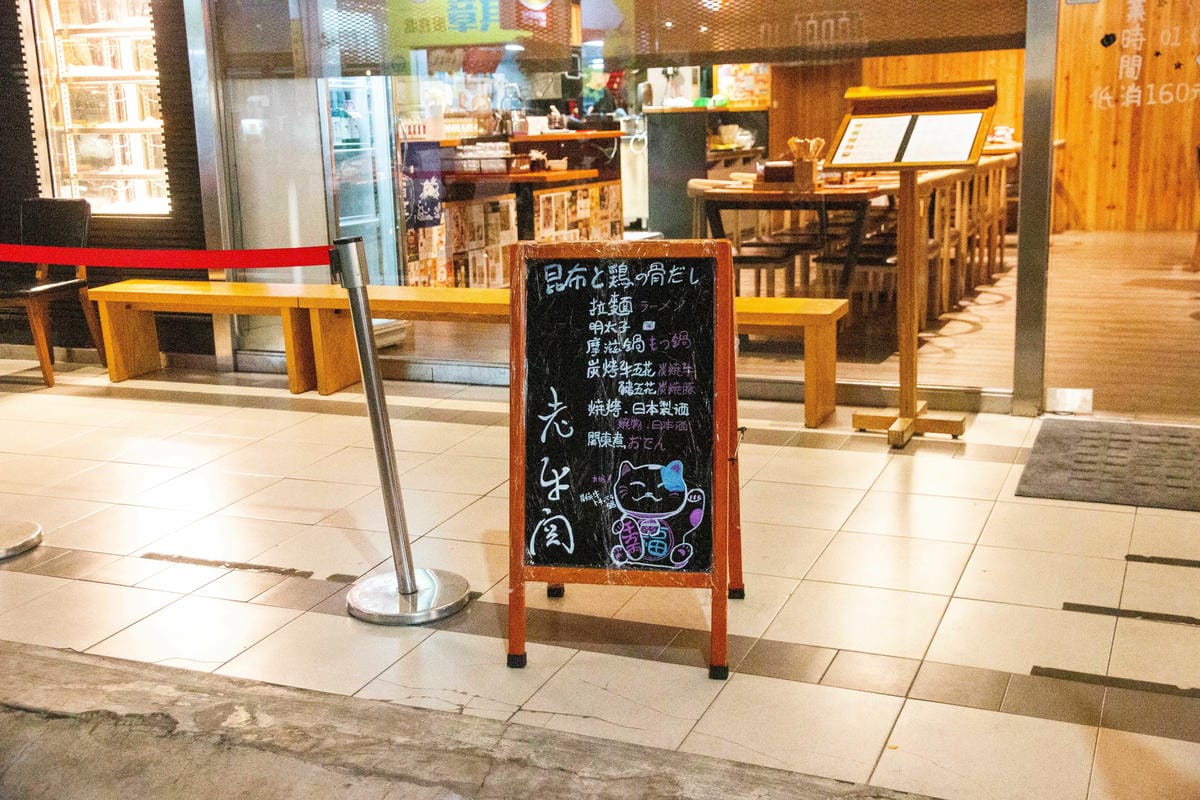 時間
低消160元
昆布と鶏の骨だし
拉麵 ラーメン
明太子
摩滋鍋 もつ鍋
炭烤牛五花 炭焼牛
豬五花 炭焼豚
燒烤.日本製酒
焼物.日本酒
關東煮 おでん
老
福